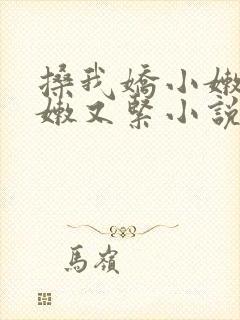 搡我嬌小嫩
嫩又緊小說
馬嶺